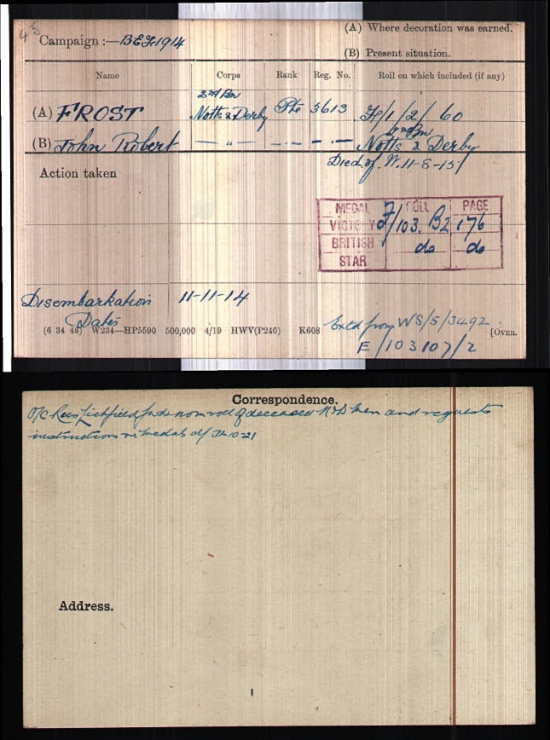 (A) Where decoration was earned.
Campaign :— B.E.F. 1914
(B) Present situation.
Name Corps Rank Reg. No. Roll on which included (if any)
2nd Bn
(A) FROST Notts & Derby Pte 5613 F/1/2/60
2nd Bn
(B) John Robert — " — — · — — · — Notts & Derby
Died of W. 11-8-15
Action taken
MEDAL ROLL PAGE
VICTORY F/103. B2 176
BRITISH do do
STAR
Disembarkation 11-11-14
Dates
(6 34 46) W234—HP5590 500,000 4/19 HWV(P240) K608 [OVER.
from WS/5/3492
E/103107/2
Correspondence.
O/C Recs Lichfield nom roll of deceased N&D men and requests
instructions re medals
Address.